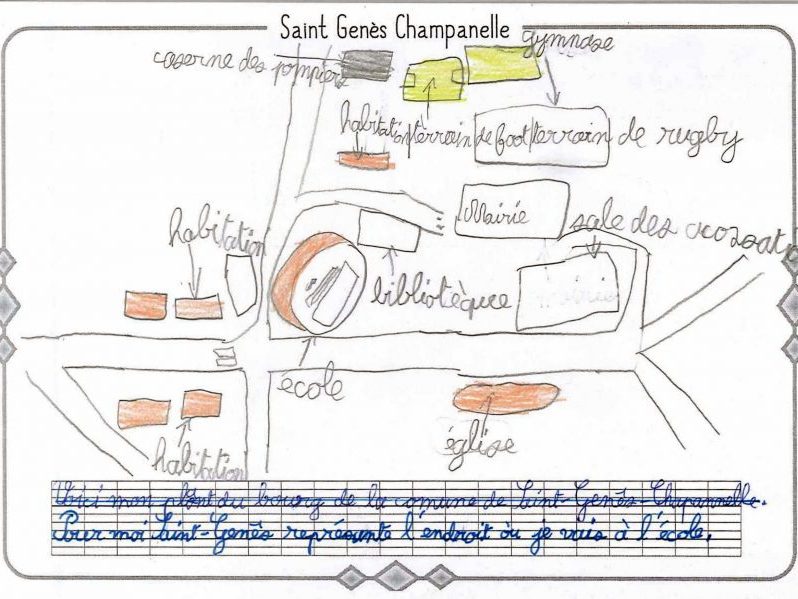 Saint Genès Champanelle
gymnase
caserne des pompiers
habitation
terrain de foot
terrain de rugby
Mairie
sale des
habitation
bibliotèque
mairie
école
église
habitation
Voici mon plan du bourg de la comune de Saint-Genès-Chapannelle.
Pour moi Saint-Genès représente l'endroit où je vais à l'école.